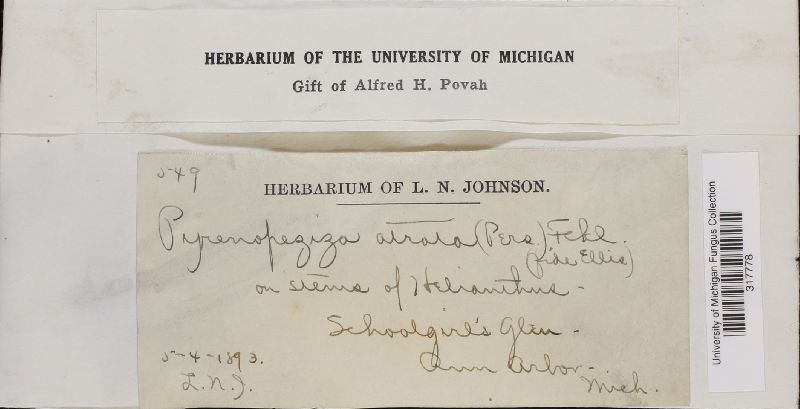 HERBARIUM OF THE UNIVERSITY OF MICHIGAN
Gift of Alfred H. Povah
549
HERBARIUM OF L. N. JOHNSON.
Pyrenopeziza atrata (Pers) Fckl.
(fide Ellis)
on stems of Helianthus -
Schoolgirl's Glen -
5-4-1893.
Ann Arbor -
L.N.J.
Mich.
University of Michigan Fungus Collection
317778